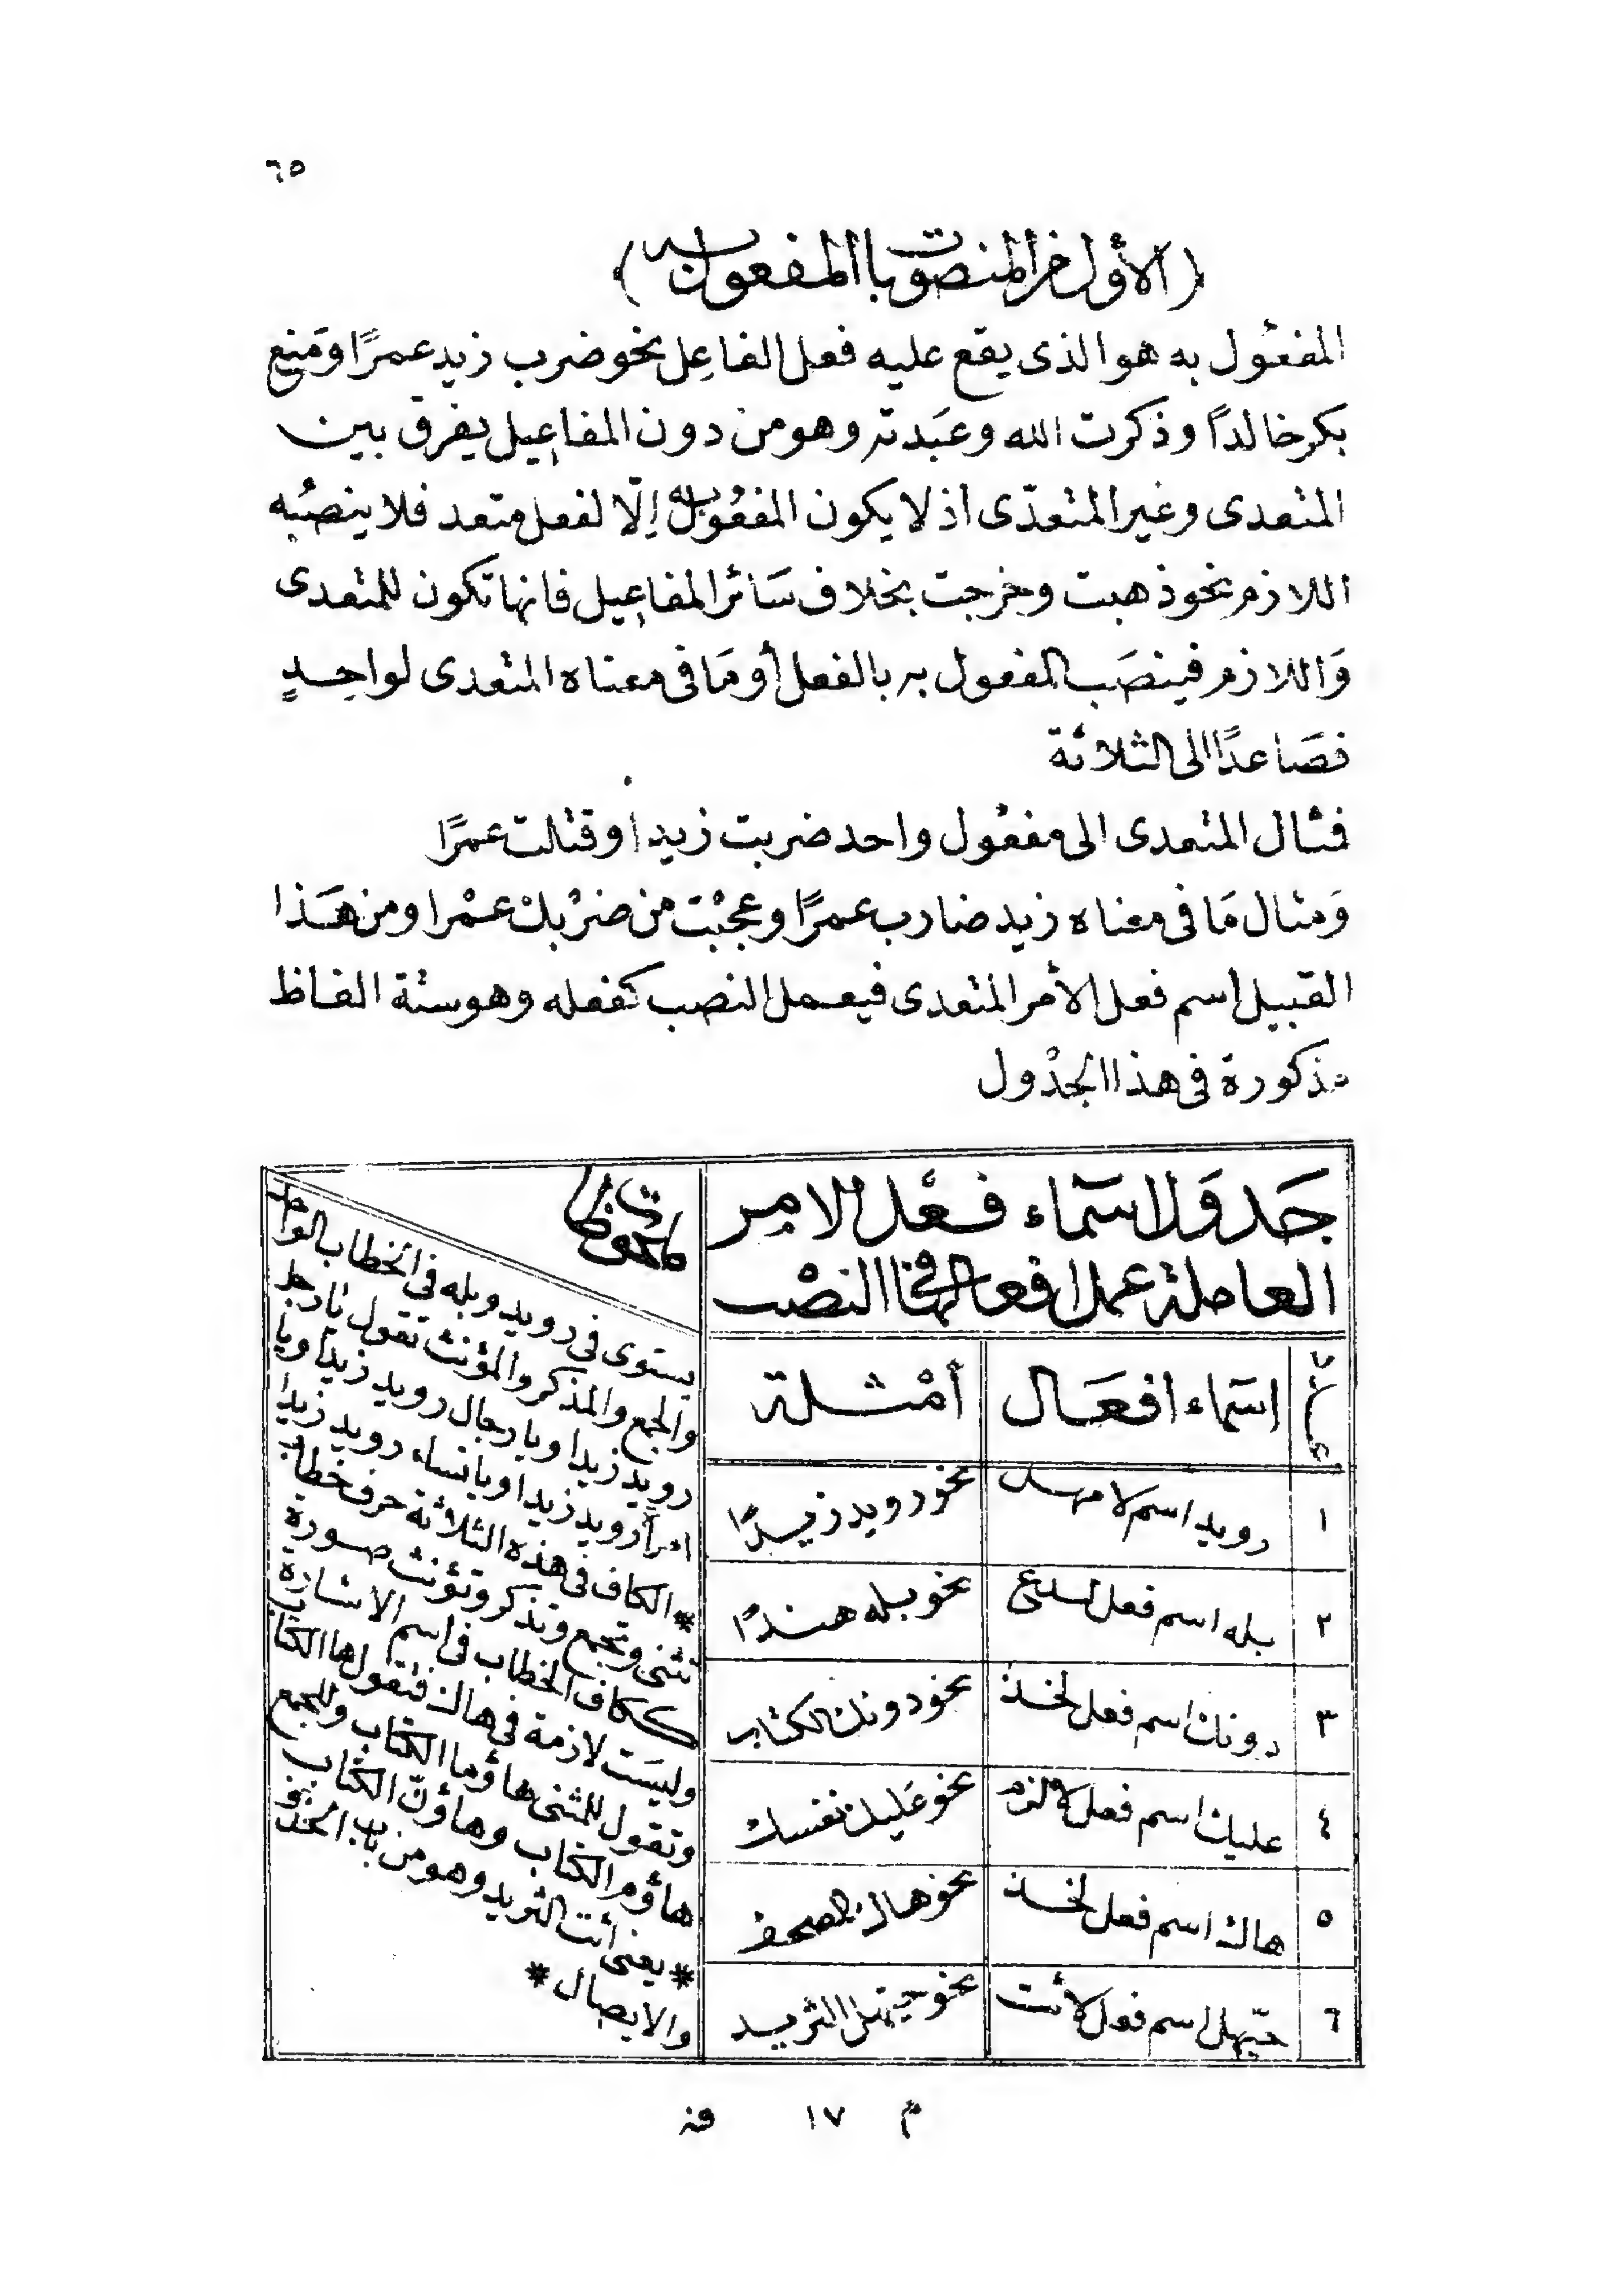 ٦٥
(الأول من المنصوبات المفعول به)
المفعُول به هو الذى يقع عليه فعل الفاعِل نحو ضرب زيد عمرًا ومَنع
بكر خالدًا وذكرت الله وعَبَدته وهو من دون المفاعِيل يفرق بين
المتعدى وغير المتعدّى اذ لا يكون المفعُول به إلّا لفعل متعد فلا ينصبُه
اللازم نحو ذهبت وخرجت بخلاف سَائر المفاعِيل فانها تكون للمتعدى
وَاللازم فينصَب المفعول به بالفعل أو مَا فى معناه المتعدى لواحِدٍ
فصَاعدًا الى الثلاثة
فمثال المتعدى الى مفعُول واحد ضربت زيدا وقتلت عمرًا
وَمثال مَا فى معناه زيد ضارب عمرًا وعجبْت من ضرْبك عمْرا ومن هَذا
القبيل اسم فعل الأمر المتعدى فيعمل النصب كفعله وهو ستة الفاظ
مذكورة فى هذا الجدْول
جَدوَل اسمَاء فعْل الامِر
العاملة عمل افعالها فى النصْب
اسمَاء افعَال
أمْثلة
١ رويد اسم لامهل نحو رويد زيدًا
٢ بله اسم فعل لدع نحو بله هندًا
٣ دونك اسم فعل لخذ نحو دونك الكتاب
٤ عليك اسم فعل لالزم نحو عَليك نفسك
٥ هاك اسم فعل لخذ نحو هاك المصحف
٦ حيّهل اسم فعل لأئت نحو حيّهل الثريد
ملحوظات
يستوى فى رويد وبله فى الخطاب الواحد
والجمع والمذكر والمؤنث تقول يا رجل
رويد زيدا ويا رجال رويد زيدا ويا
امرأة رويد زيدا ويا نساء رويد زيدا
* الكاف فى هذه الثلاثة حرف خطاب
تثنى وتجمع وتذكر وتؤنث صورة
ككاف الخطاب فى اسم الاشارة
وليسَت لازمة فى هاك فتقول ها الكتاب
وتقول للمثنى هاؤما الكتاب وللجمع
هاؤم الكتاب وهاؤنّ الكتاب
* يعنى أئت الثريد وهو من باب الحذف
والايصال *
م ١٧ فن